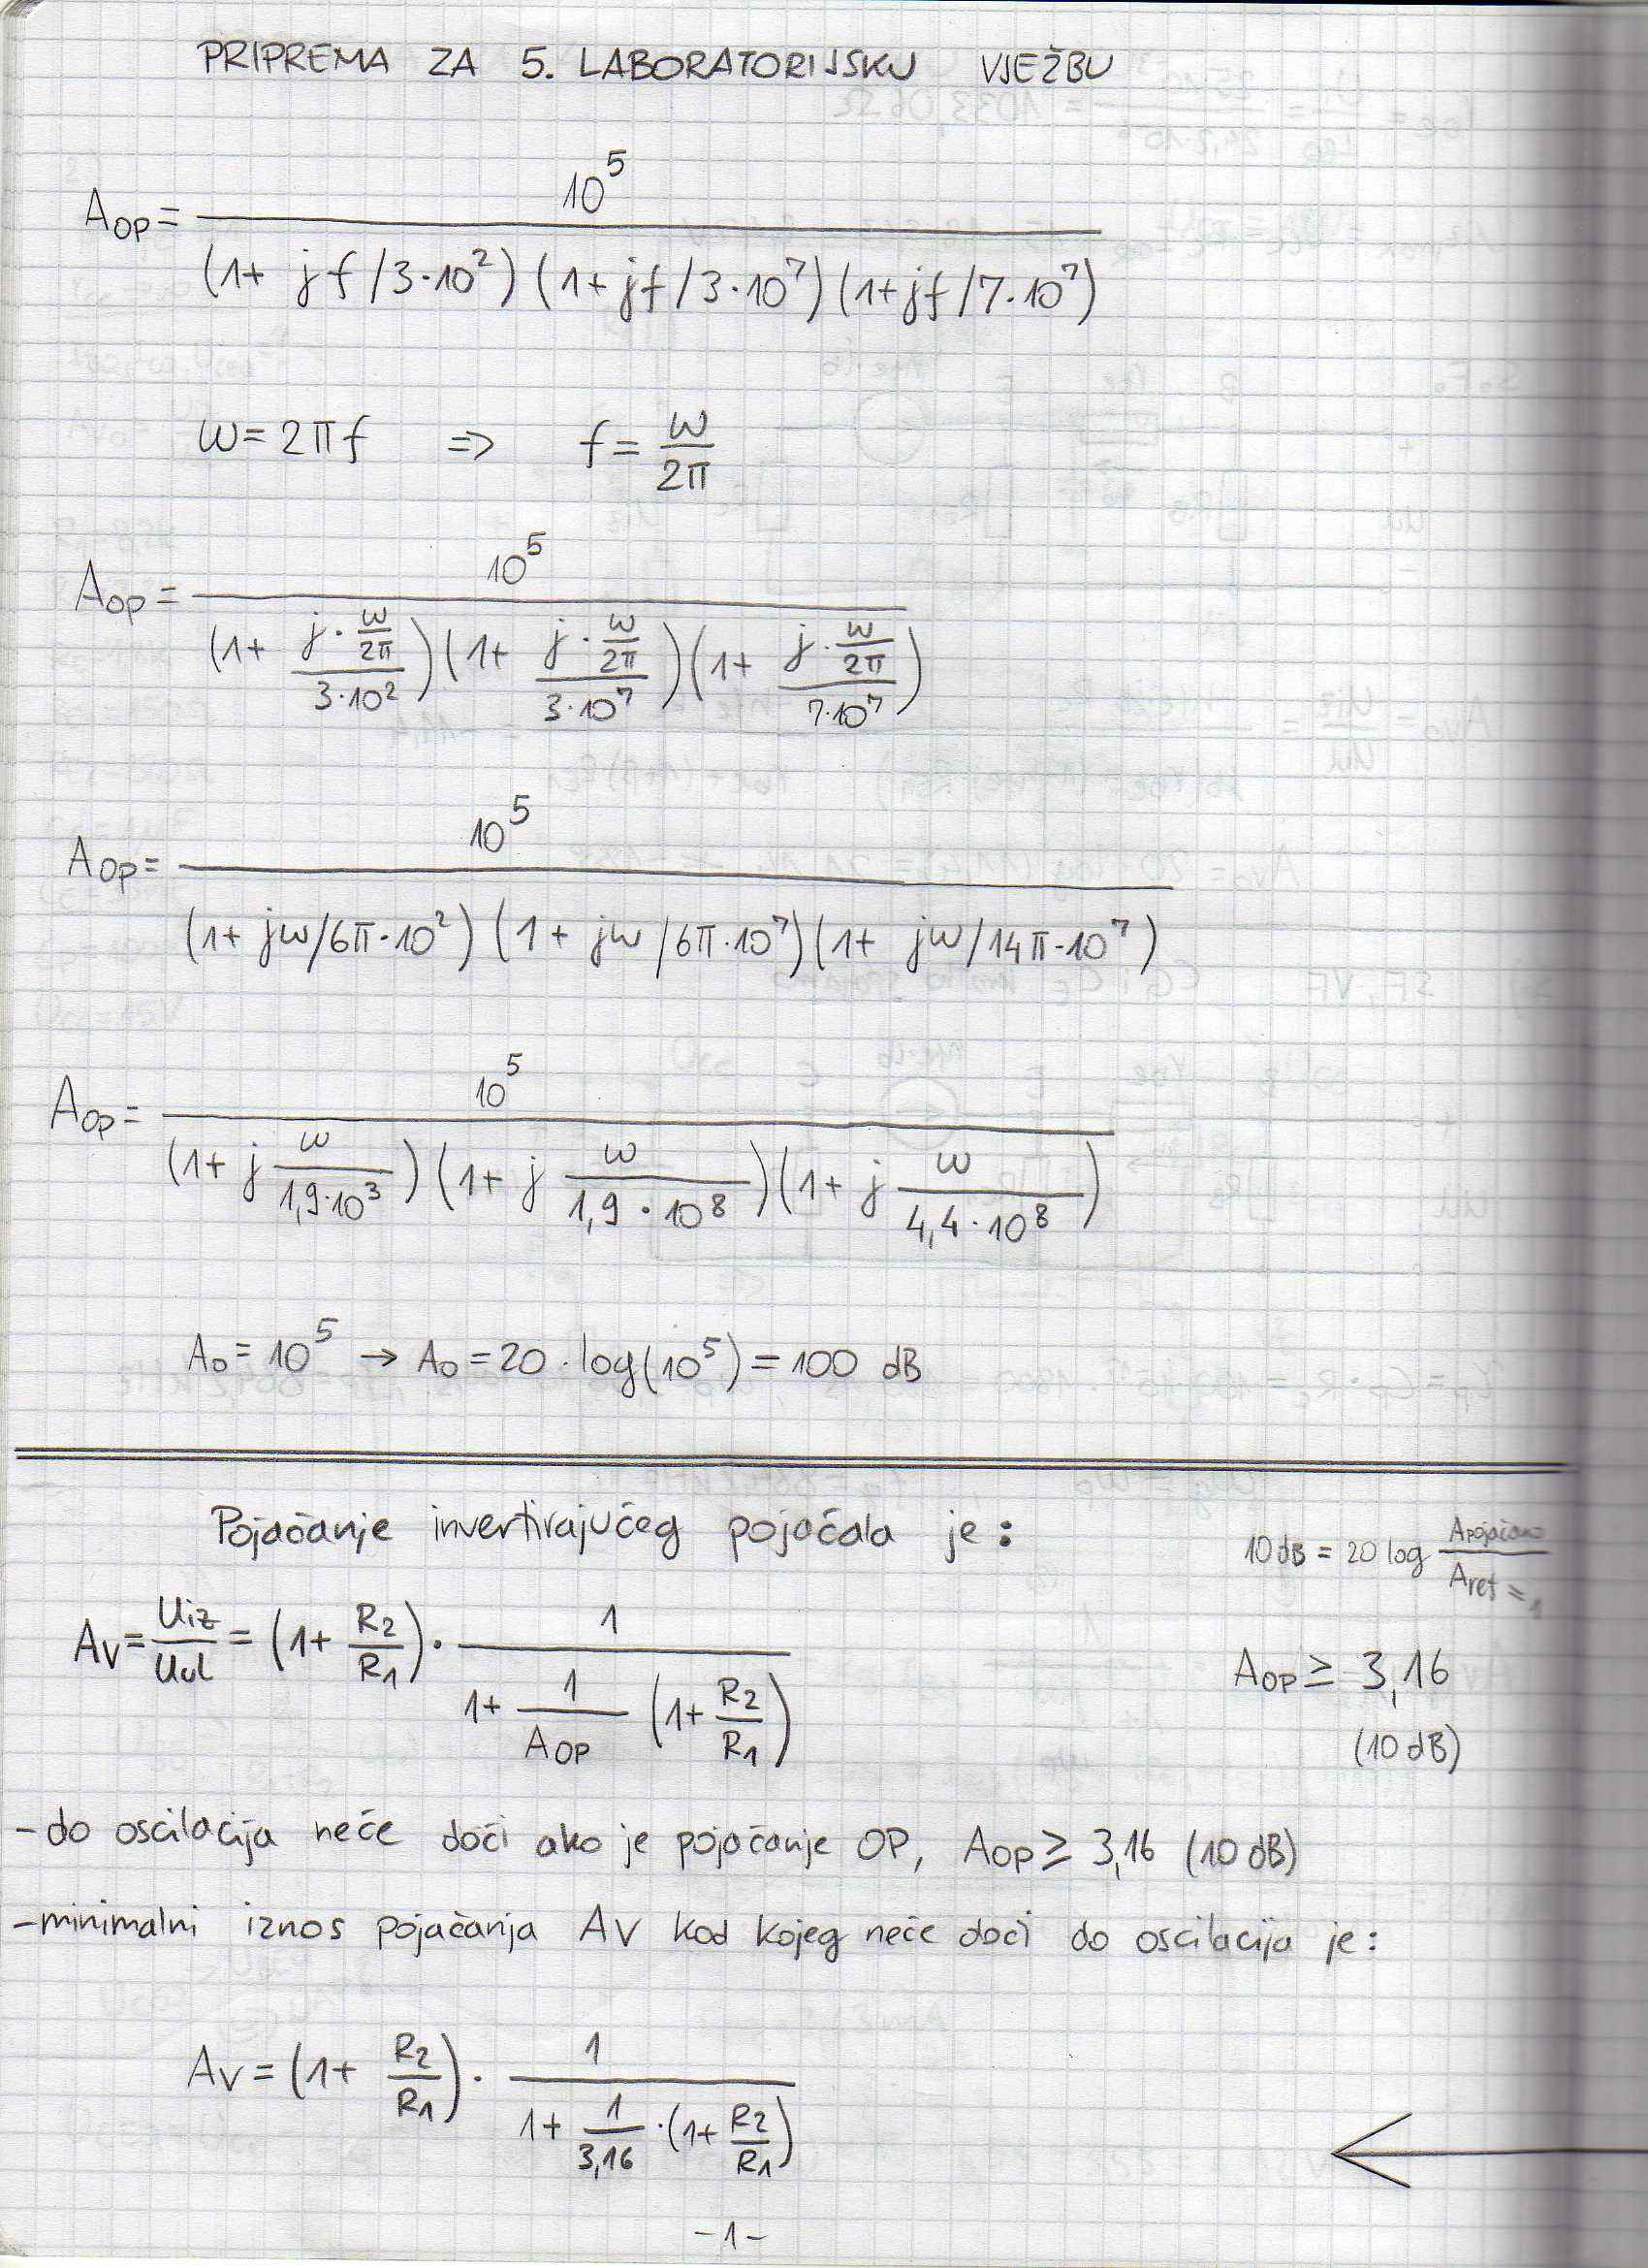 PRIPREMA ZA 5. LABORATORIJSKU VJEŽBU
Aop = 10^5 / (1+ jf/3·10^2) (1+jf/3·10^7) (1+jf/7·10^7)
ω=2πf => f= ω/2π
Aop = 10^5 / (1+ (j·ω/2π)/(3·10^2)) (1+ (j·ω/2π)/(3·10^7)) (1+ (j·ω/2π)/(7·10^7))
Aop= 10^5 / (1+ jω/6π·10^2) (1+ jω/6π·10^7) (1+ jω/14π·10^7)
Aop= 10^5 / (1+ j ω/(1,9·10^3)) (1+ j ω/(1,9·10^8)) (1+ j ω/(4,4·10^8))
Ao = 10^5 → Ao = 20·log(10^5) = 100 dB
Pojačanje invertirajućeg pojačala je:
10 dB = 20 log Apojačano / Aret = 1
Av = Uiz/Uul = (1+ R2/R1) · 1 / (1+ 1/Aop (1+ R2/R1))
Aop ≥ 3,16
(10 dB)
-do oscilacija neće doći ako je pojačanje OP, Aop ≥ 3,16 (10 dB)
-minimalni iznos pojačanja Av kod kojeg neće doći do oscilacija je:
Av = (1+ R2/R1) · 1 / (1+ 1/3,16 ·(1+ R2/R1))
-1-